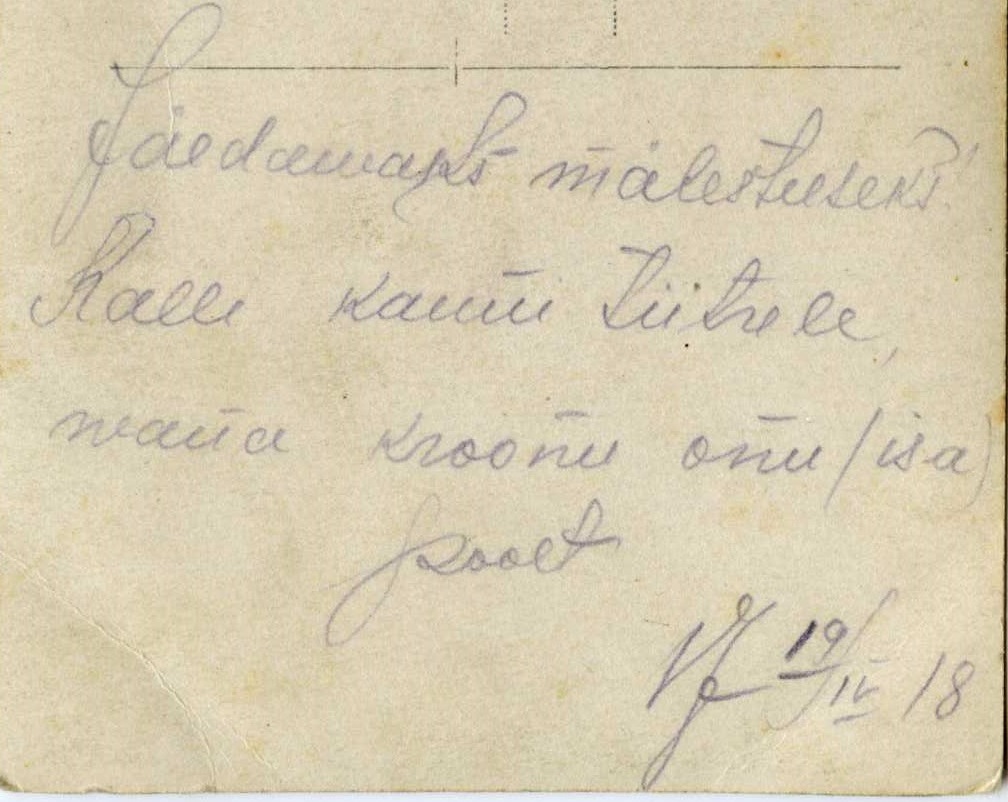 Jäedawaks mälestuseks!
Kalli kaimu Tiitrele,
wana kroonu onu (isa)
poolt
19/IV 18